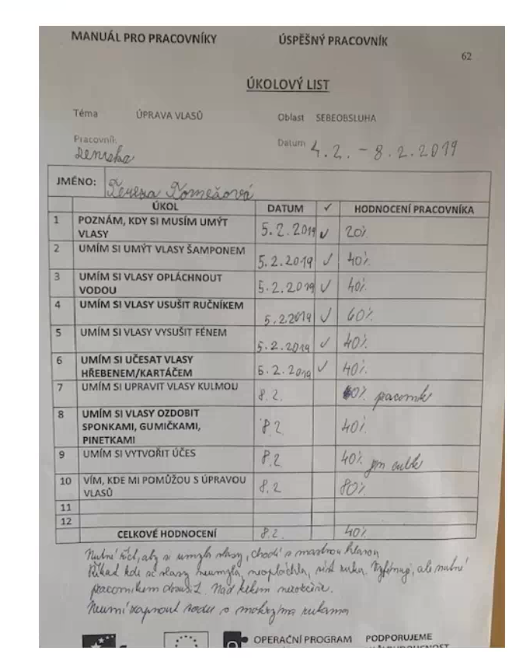 MANUÁL PRO PRACOVNÍKY ÚSPĚŠNÝ PRACOVNÍK
62
ÚKOLOVÝ LIST
Téma ÚPRAVA VLASŮ Oblast SEBEOBSLUHA
Pracovník: Datum 4.2. - 8.2.2019
JMÉNO: Tereza Tomešová
ÚKOL DATUM ✓ HODNOCENÍ PRACOVNÍKA
1 POZNÁM, KDY SI MUSÍM UMÝT VLASY 5.2.2019 ✓ 20%
2 UMÍM SI UMÝT VLASY ŠAMPONEM 5.2.2019 ✓ 40%
3 UMÍM SI VLASY OPLÁCHNOUT VODOU 5.2.2019 ✓ 40%
4 UMÍM SI VLASY USUŠIT RUČNÍKEM 5.2.2019 ✓ 60%
5 UMÍM SI VLASY VYSUŠIT FÉNEM 5.2.2019 ✓ 40%
6 UMÍM SI UČESAT VLASY HŘEBENEM/KARTÁČEM 5.2.2019 ✓ 40%
7 UMÍM SI UPRAVIT VLASY KULMOU 8.2.
8 UMÍM SI VLASY OZDOBIT SPONKAMI, GUMIČKAMI, PINETKAMI 8.2 40%
9 UMÍM SI VYTVOŘIT ÚČES 8.2 40% jen culík
10 VÍM, KDE MI POMŮŽOU S ÚPRAVOU VLASŮ 8.2 80%
11
12
CELKOVÉ HODNOCENÍ 8.2 40%
Nutné říct, aby si umyla vlasy, chodí s mastnou hlavou
Neumí zapnout vodu s mokrýma rukama
OPERAČNÍ PROGRAM PODPORUJEME